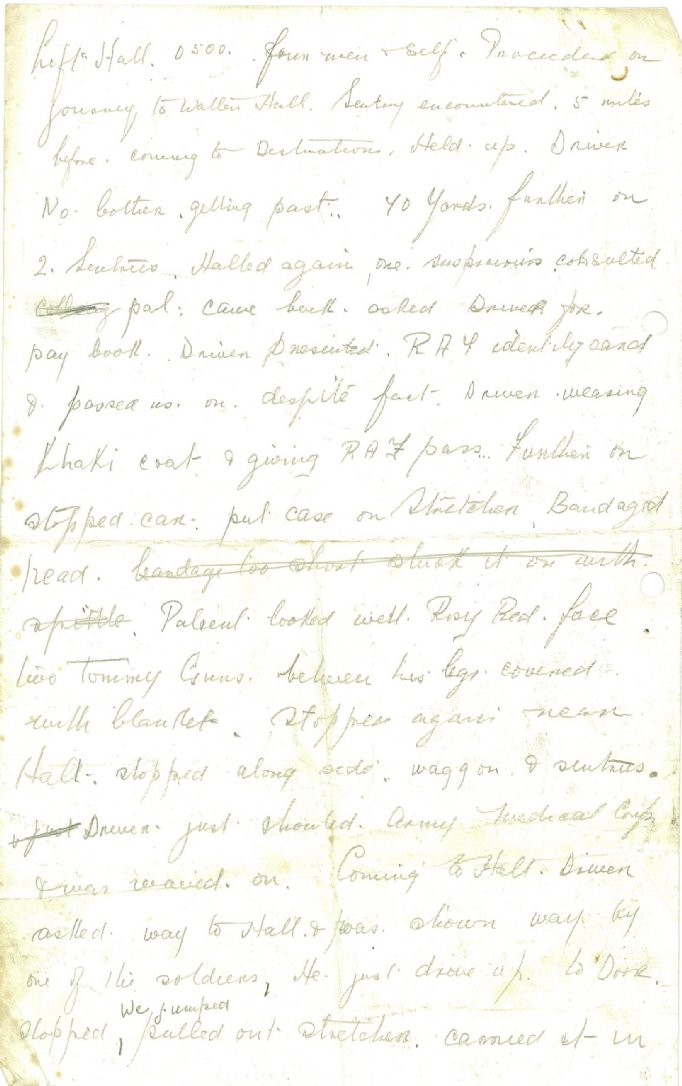 Left Hall. 0500. four men & self. Proceeded on
Journey to Walton Hall. Sentry encountered. 5 miles
before. coming to Destination. Held up. Driver
No. bother. getting past.. 40 Yards. further on
2. Sentries. Halted again, one. suspicious consulted
pal: came back. asked Driver for.
pay book. Driver presented. RAF identity card
& passed us. on. despite fact. Driver. wearing
Khaki coat & giving RAF pass.. Further on
stopped car. put case on Stretcher, Bandaged
head. bandage too short stuck it on with.
spittle. Patient looked well. Rosy Red. face
two Tommy Guns. between his legs covered.
with blanket. Stopped again near
Hall. stopped along side. waggon. & sentries.
& just Driver. just shouted. Army Medical Corps
& was waved. on. Coming to Hall. Driver
asked. way to Hall. & was. shown way by
one of the soldiers, He. just drove up. to Door.
We jumped
stopped, pulled out stretcher. carried it in